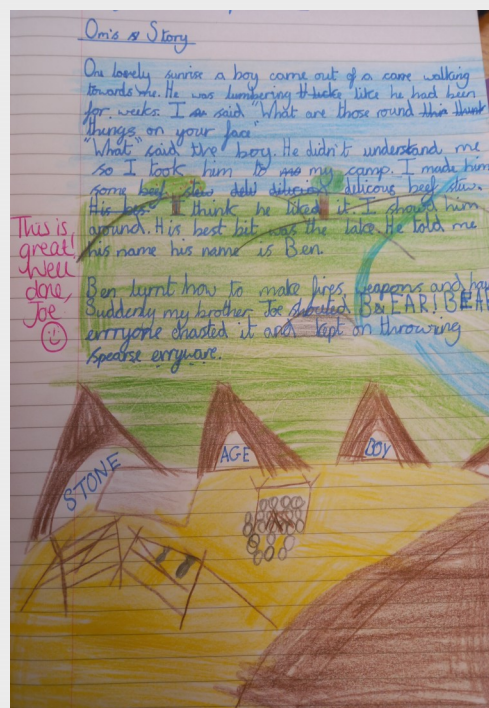 Om's Story
One lovely sunrise a boy came out of a cave walking
towards me. He was lumbering like he had been
for weeks. I said "What are those round
things on your face"
"What" said the boy. He didn't understand me
so I took him to my camp. I made him
some delicous beef stew.
I think he liked it. I should him
around. His best bit was the lake. He told me
his name his name is Ben.
Ben lurnt how to make fires, weapons and
Suddenly my brother Joe shouted BEAR! BEAR
errryone chasted it and kept on throwing
spearse erryware.
This is
great!
Well
done,
Joe
STONE
AGE
BOY